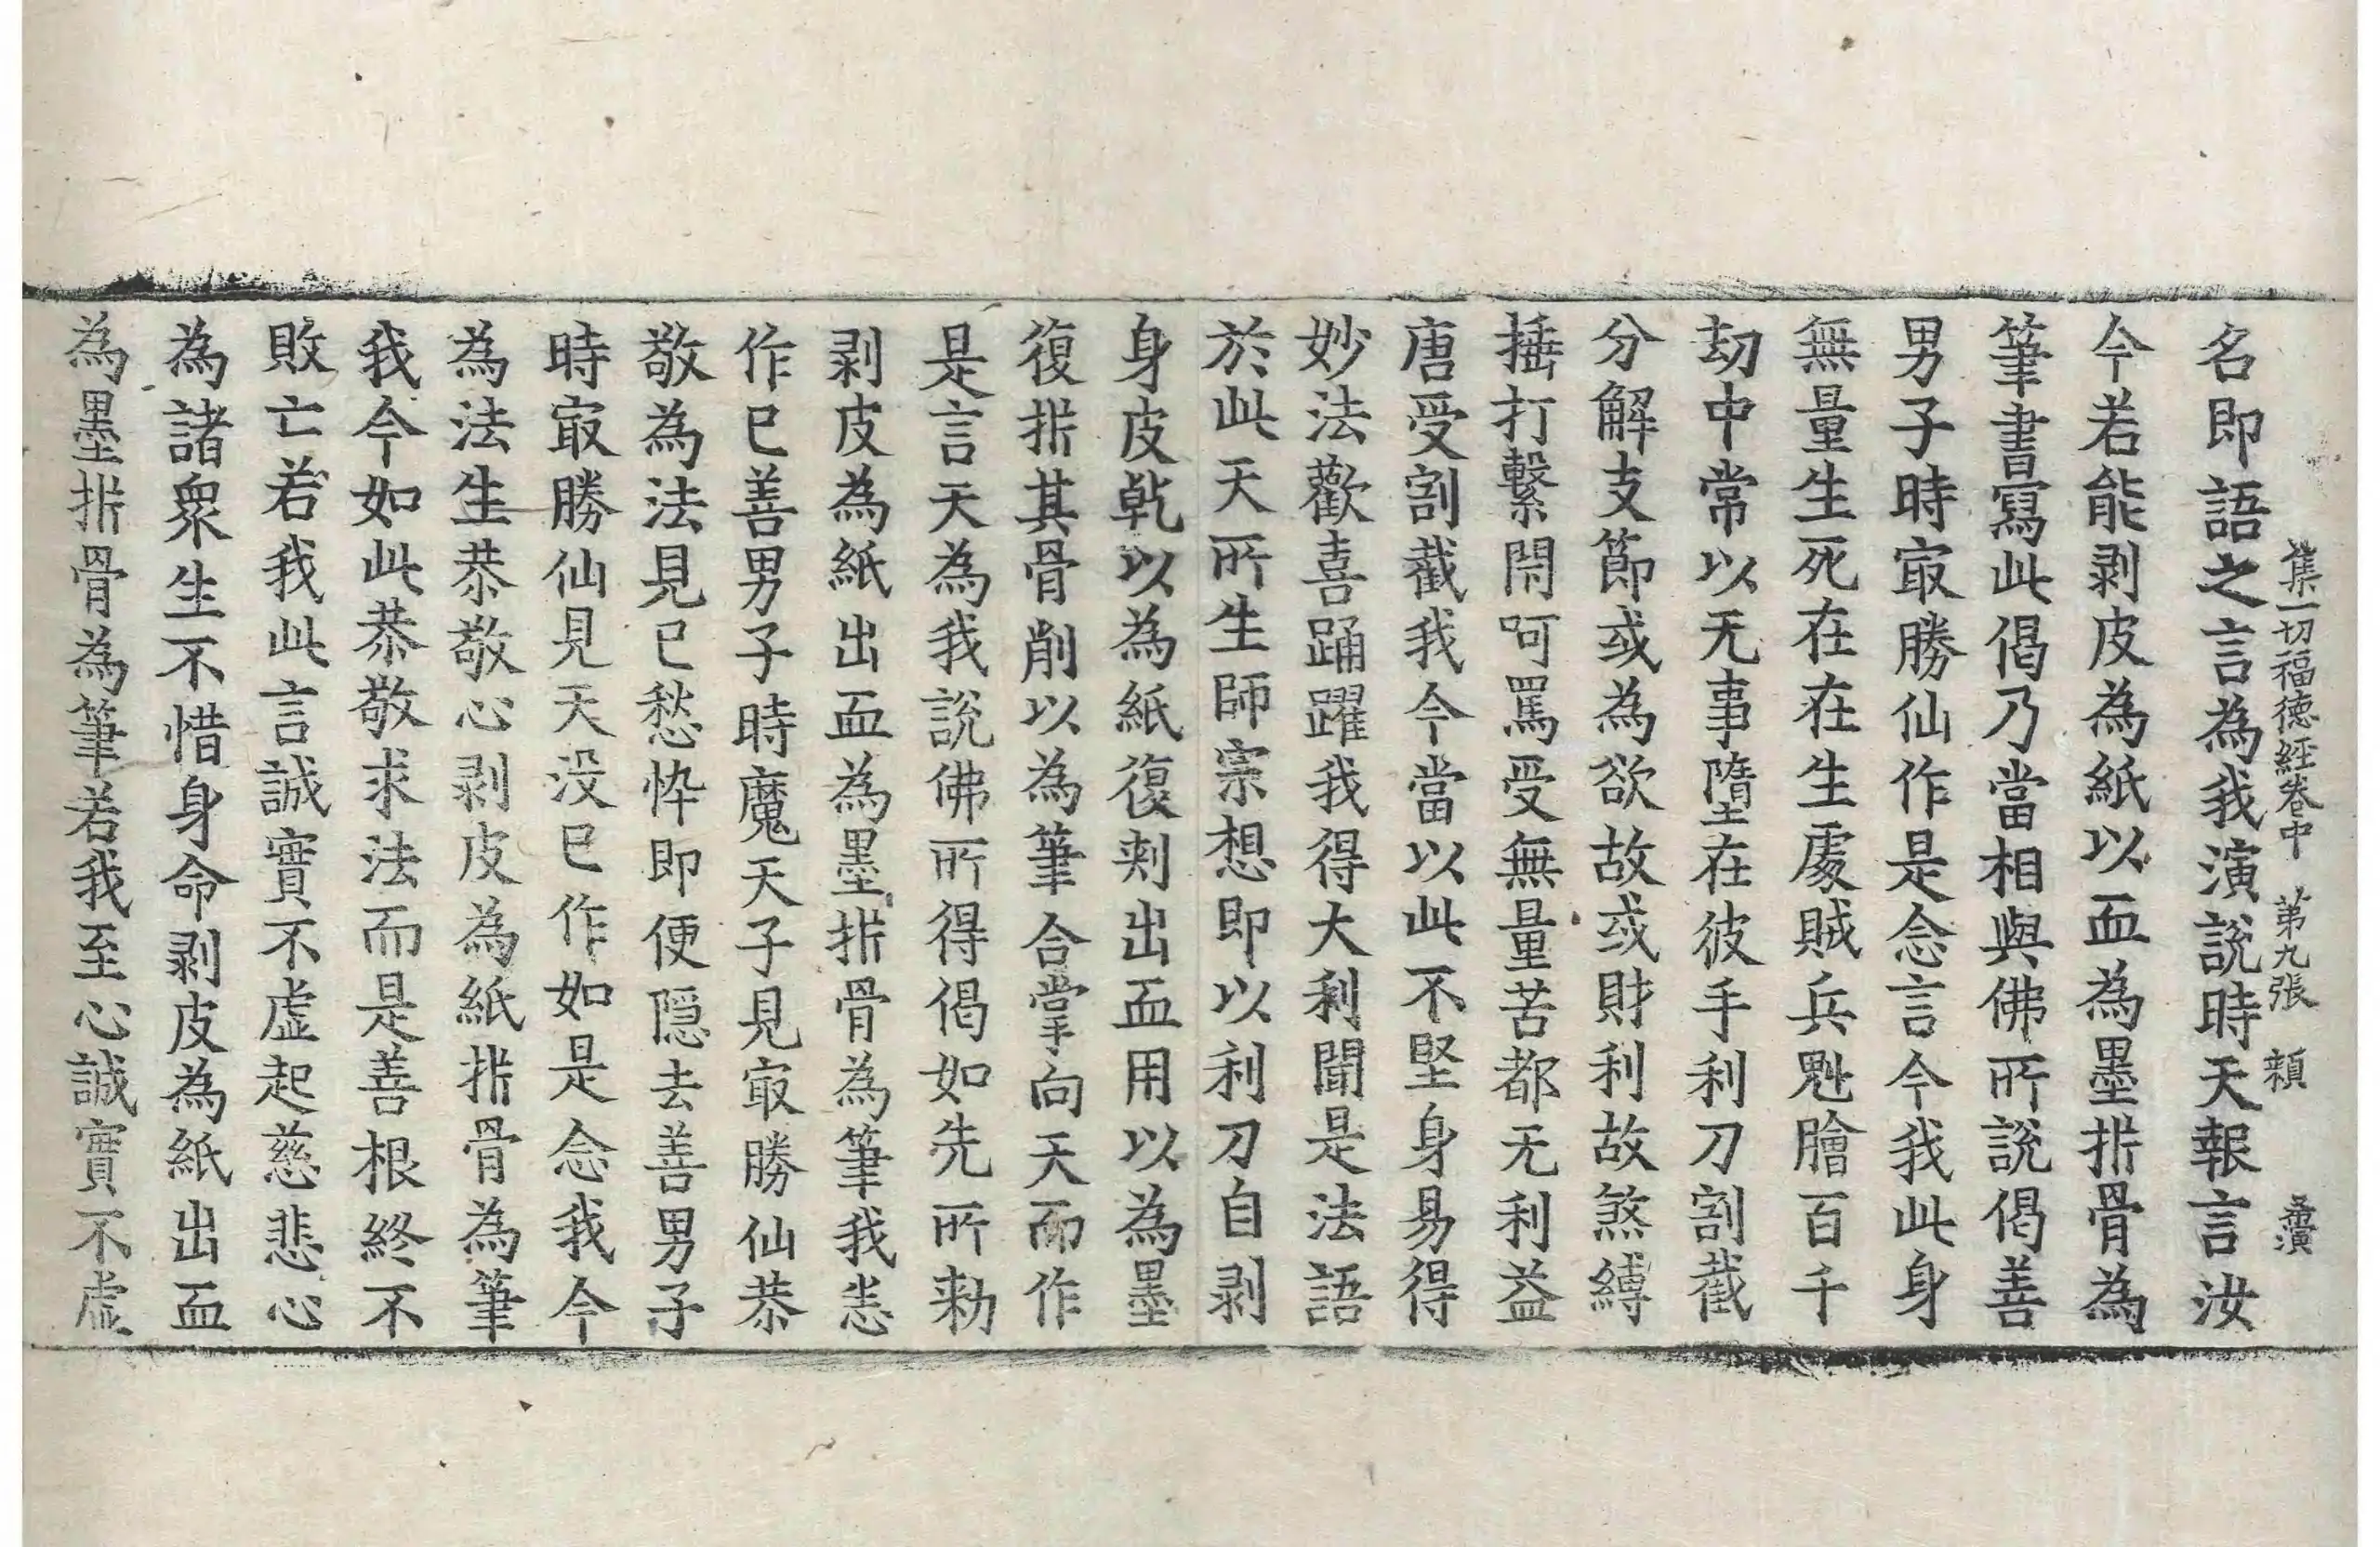 集一切福德經卷中 第九張 頼
名即語之言為我演說時天報言汝
今若能剥皮為紙以血為墨㭊骨為
筆書寫此偈乃當相與佛所說偈善
男子時冣勝仙作是念言今我此身
無量生死在在生處賊兵魁膾百千
劫中常以无事墮在彼手利刀割截
分解支節或為欲故或財利故煞縛
捶打繫閇呵罵受無量苦都无利益
唐受割截我今當以此不堅身易得
妙法歡喜踊躍我得大利聞是法語
於此天所生師宗想即以利刀自剥
身皮乹以為紙復刾出血用以為墨
復㭊其骨削以為筆合掌向天而作
是言天為我說佛所得偈如先所勑
剥皮為紙出血為墨㭊骨為筆我悉
作已善男子時魔天子見冣勝仙恭
敬為法見已愁忰即便隠去善男子
時冣勝仙見天没已作如是念我今
為法生恭敬心剥皮為紙㭊骨為筆
我今如此恭敬求法而是善根終不
敗亡若我此言誠實不虛起慈悲心
為諸衆生不惜身命剥皮為紙出血
為墨㭊骨為筆若我至心誠實不虛